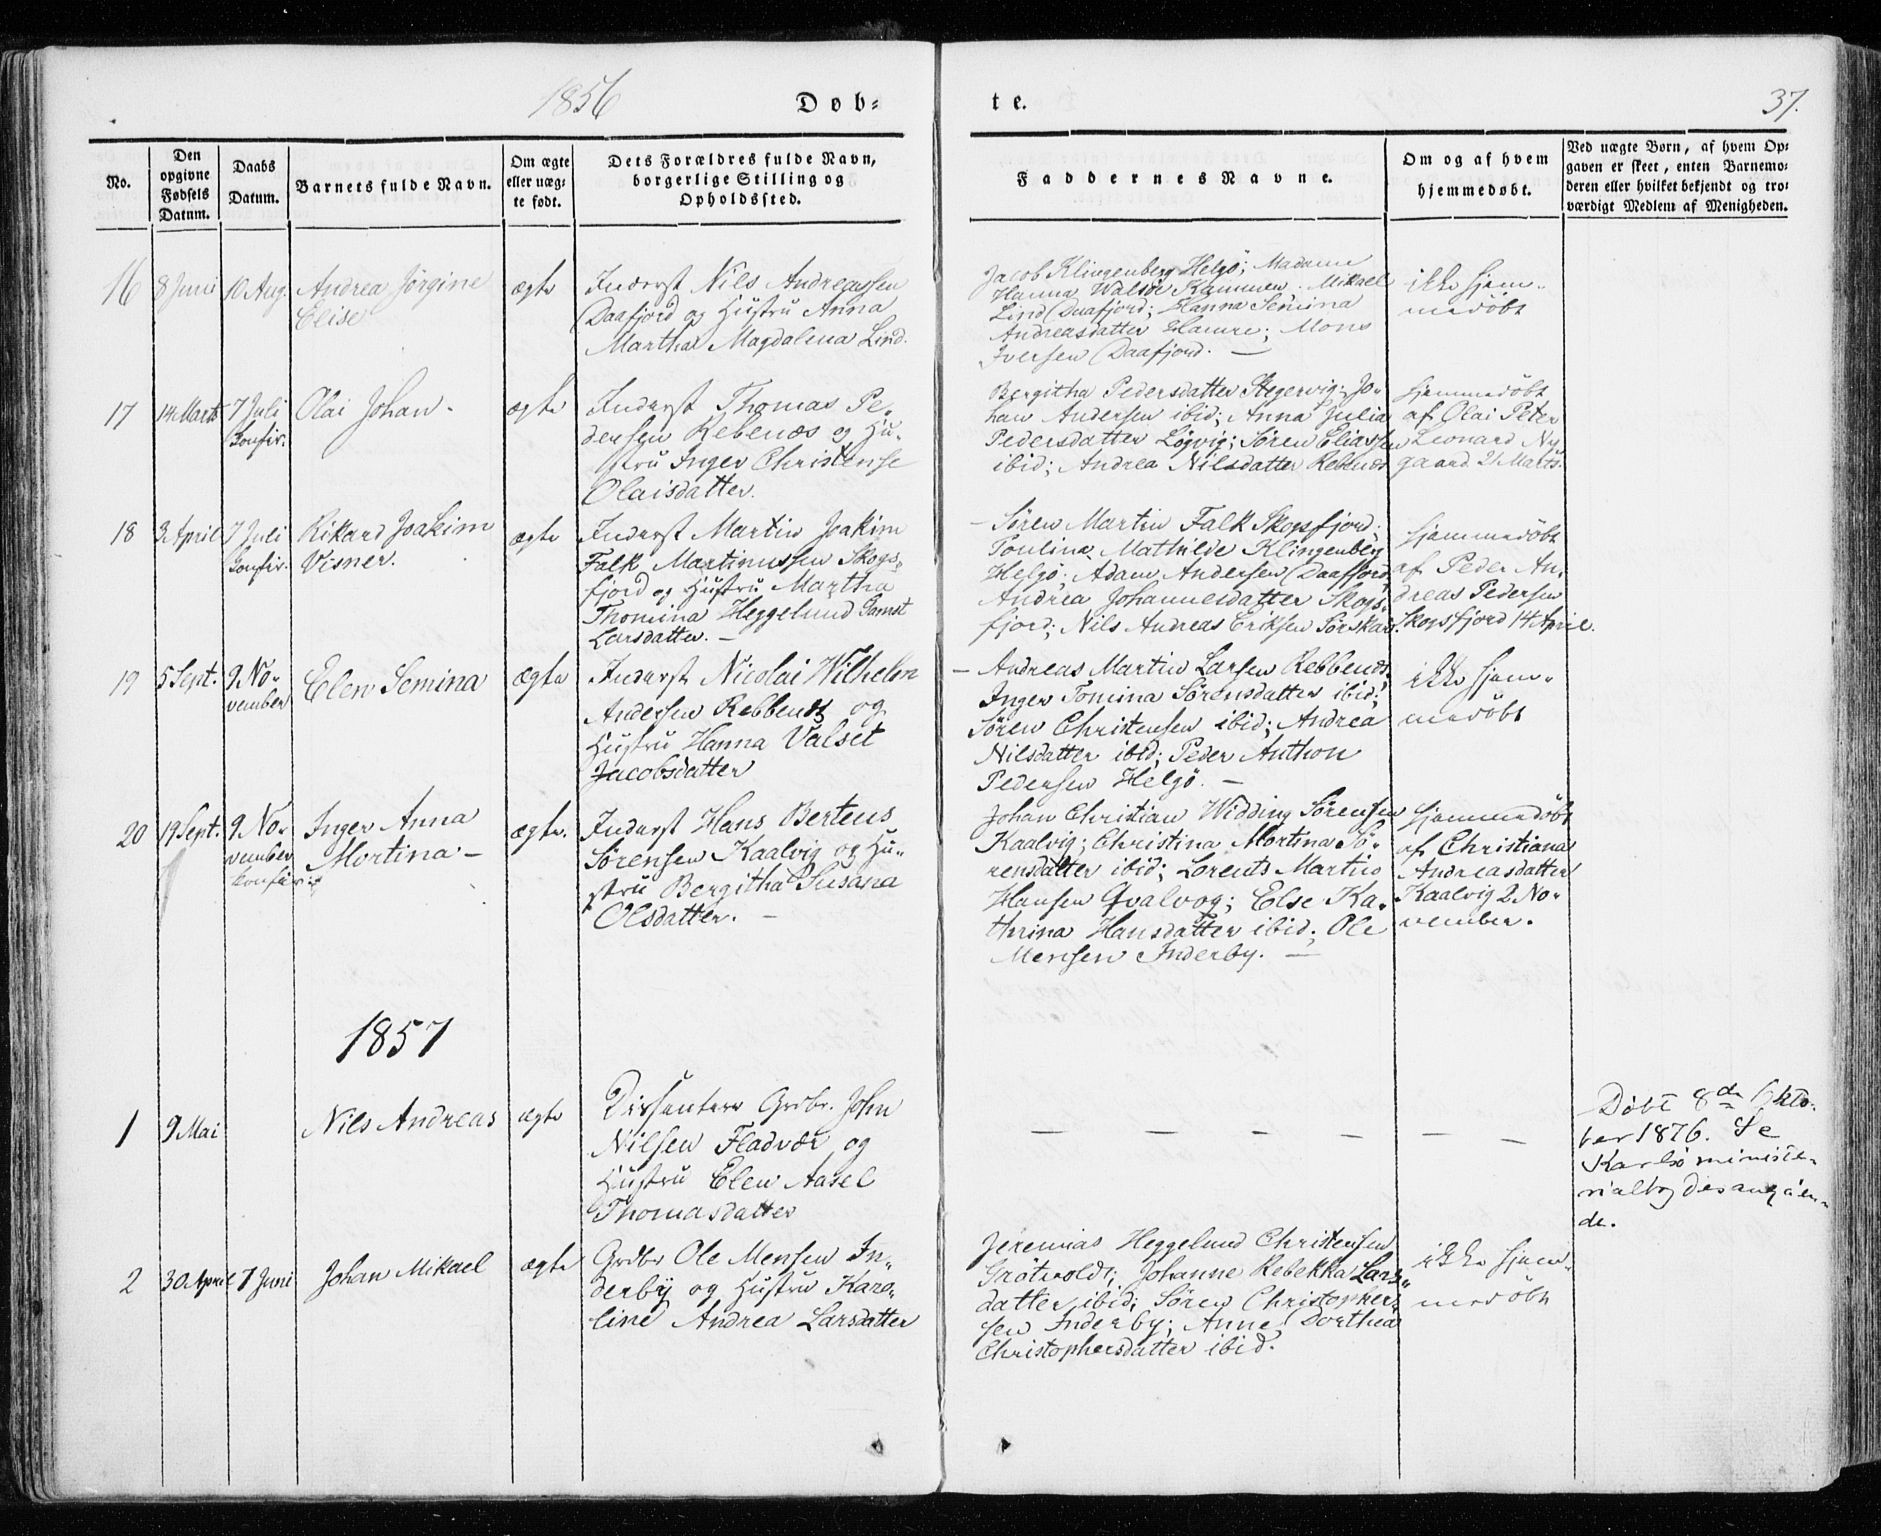 1856
Døb-
te.
37.
No.
Den
opgivne
Fødsels
Datum.
Daabs
Datum.
Barnets fulde Navn.
Om ægte
eller uæg-
te født.
Dets Forældres fulde Navn,
borgerlige Stilling og
Opholdssted.
Faddernes Navne.
Om og af hvem
hjemmedøbt.
Ved uægte Børn, af hvem Op-
gaven er skeet, enten Barnemo-
deren eller hvilket bekjendt og tro-
værdigt Medlem af Menigheden.
16
8 Juni
10 Aug.
Andrea Jørgine
Elise
ægte
Inderst Nils Andreassen
Daafjord og Hustru Anna
Martha Magdalena Lind.
Jacob Klingenberg Helgø; Madame
Hanna Walsøe Kammen. Mikael
Lind Daafjord; Hanna Semina
Andreasdatter Hamre; Mons
Iversen Daafjord. —
ikke hjem-
medøbt
17
14 Marts
7 Juli
Konfir.
Olai Johan.
ægte
Inderst Thomas Pe-
dersen Rebenæs og Hu-
stru Inger Christense
Olaisdatter.
Bergitha Pedersdatter Stegervig; Jo-
han Andersen ibid; Anna Julia
Pedersdatter Løgvig; Søren Eliassen
ibid; Andrea Nilsdatter Rebbenæs
hjemmedøbt
af Olai Peter
Leonard Ny
gaard 21 Marts.
18
3 April
7 Juli
Konfir.
Rikard Joakim
Visner.
ægte
Inderst Martin Joakim
Falk Martinussen Skogs-
fjord og Hustru Martha
Thomina Heggelund Gamst
Larsdatter. —
— Søren Martin Falk Skogsfjord;
Poulina Mathilde Klingenberg
Helgø; Adam Andersen Daafjord;
Andrea Johannesdatter Skogs-
fjord; Nils Andreas Eriksen Sørskar.
hjemmedøbt
af Peder An-
dreas Pedersen
Skogsfjord 14 April.
19
5 Sept.
9 No-
vember
Elen Semina
ægte
Inderst Nicolai Wilhelm
Andersen Rebbenæs og
Hustru Hanna Valset
Jacobsdatter
— Andreas Martin Larsen Rebbenæs.
Inger Tomina Sørensdatter ibid;
Søren Christensen ibid; Andrea
Nilsdatter ibid; Peder Anthon
Pedersen Helgø. —
ikke hjem-
medøbt
20
19 Sept.
9 No-
vember
konfir.
Inger Anna
Mortina —
ægte.
Inderst Hans Berteus
Sørensen Kaalvig og Hu-
stru Bergitha Susana
Olsdatter. —
Johan Christian Widding Sørensen
Kaalvig; Christina Mortina Sø-
rensdatter ibid; Lorents Martin
Hansen Qvalvog; Else Ka-
thrina Hansdatter ibid; Ole
Mensen Inderby. —
hjemmedøbt
af Christiana
Andreasdatter
Kaalvig 2 No-
vember.
1857
1
9 Mai
Nils Andreas
ægte
Dissenter Grdbr. John
Nilsen Fladvær og
Hustru Elen Aasel
Thomasdatter
— — — — — — — —
Døbt 8de Okto-
ber 1876. Se
Karlsø ministe-
rialbog desangåen-
de.
2
30 April
7 Juni
Johan Mikael
ægte
Grdbr Ole Mensen In-
derby og Hustru Karo-
line Andrea Larsdatter
Jeremias Heggelund Christensen
Grøtvoldt; Johanne Rebekka Lars-
datter ibid; Søren Christopher-
sen Inderby; Anne Dorthea
Christophersdatter ibid.
ikke hjem-
medøbt